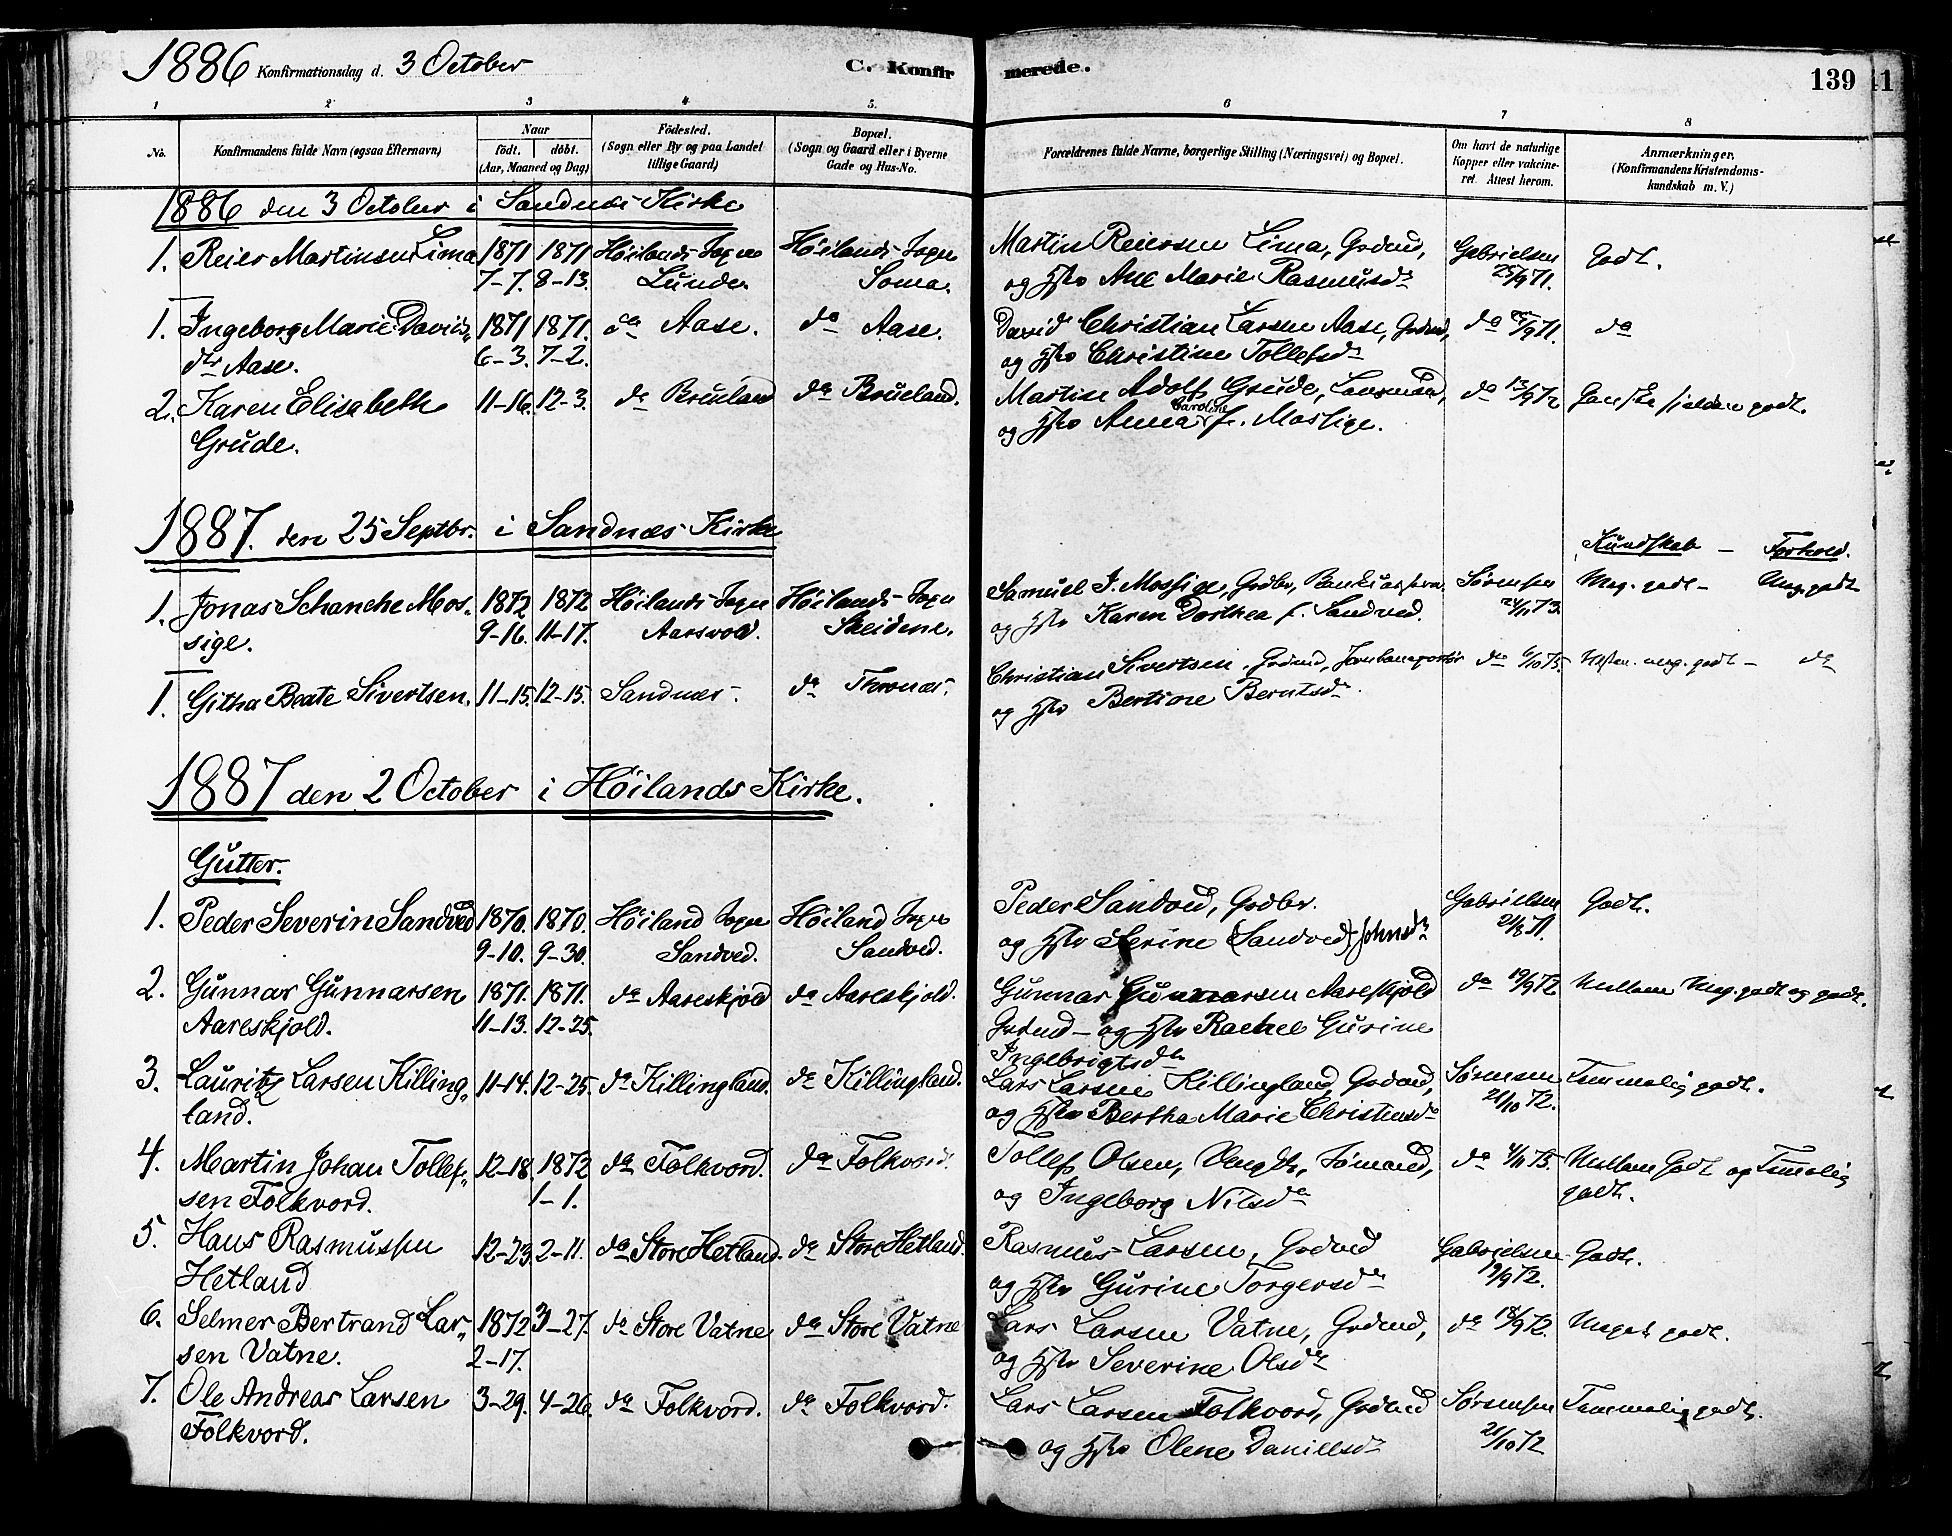 1886 Konfirmationsdag d. 3 October C. Konfirmerede. 139
1 2 3 4 5. 6 7 8
No. Konfirmandens fulde Navn (ogsaa Efternavn) Naar födt. döbt. (Aar, Maaned og Dag) Födested. (Sogn eller By og paa Landet tillige Gaard) Bopæl. (Sogn og Gaard eller i Byerne Gade og Hus-No. Forældrenes fulde Navne, borgerlige Stilling (Næringsvei) og Bopæl. Om havt de naturlige Kopper eller vakcineret. Attest herom. Anmærkninger. (Konfirmandens Kristendomskundskab m. V.)
1886 den 3 October i Sandnæs Kirke
1. Reier Martinsen Lima 1871 1871 Höilands Sogn Höilands Sogn Martin Reiersen Lima, Grdmd, Gabrielsen Godt.
7-7. 8-13. Lunde. Soma. og Hstr Ane Marie Rasmusdr 25/9 71.
1. Ingeborg Marie Davids- 1871 1871. do Aase. do Aase. David Christian Larsen Aase, Grdmd, do 25/9 71. do
dtr Aase. 6-3. 7-2. og Hstr Christine Tollefsdr
2. Karen Elisabeth 11-16. 12-3. do Brueland do Brueland. Martin Adolf Grude, Lensmand, do 13/9 72 Ganske sjelden godt.
Grude. og Hstr Anna Caroline f. Mossige.
1887. den 25 Septbr. i Sandnæs Kirke
Kundskab - Forhold.
1. Jonas Schanche Mos- 1872 1872 Höilands Sogn Höilands Sogn Samuel J. Mossige, Grdbr, Sörensen Meg. godt - Meg. godt
sige. 9-16. 11-17. Aarsvold. Skeiene. og Hstr Karen Dorthea f. Sandved. 24/11 73.
1. Githa Beate Sivertsen. 11-15. 12-15. Sandnæs. do Thronæs. Christian Sivertsen. Grdmd, do 6/10 75. Næsten meg. godt - do
og Hstr Bertine Berntsdr.
1887 den 2 October i Höilands Kirke.
Gutter.
1. Peder Severin Sandved 1870. 1870. Höiland Sogn Höiland Sogn Peder Sandved, Grdbr. Gabrielsen Godt.
9-10. 9-30. Sandved. Sandved. og Hstr Serine (Sandved) Johnsdr 21/8 71.
2. Gunnar Gunnarsen 1871. 1871. do Aareskjold do Aareskjold. Gunnar Gunnarsen Aareskjold do 19/9 72 Mellem Meg. godt og godt.
Aareskjold. 11-13. 12-25. Grdmd - og Hstr Rachel Gurine
Ingebrigtsdr
3. Lauritz Larsen Killing- 11-14. 12-25. do Killingland. do Killingland. Lars Larsen Killingland, Grdmd, Sörensen Temmelig godt.
land. og Hstr Bertha Marie Christensdr 21/10 72.
4. Martin Johan Tollef- 12-18. 1872 do Folkvord. do Folkvord. Tollef Olsen, Sömand, do 4/11 75. Mellem Godt og Temmelig
sen Folkvord. 1-1. og Ingeborg Nilsdr godt.
5. Hans Rasmussen 12-23. 2-11. do Store Hetland. do Store Hetland. Rasmus Larsen, Grdmd Gabrielsen Godt.
Hetland og Hstr Gurine Torgersdr 19/9 72.
6. Selmer Bertrand Lar- 1872 3-27. do Store Vatne do Store Vatne Lars Larsen Vatne, Grdmd, do 18/9 72. Meget godt.
sen Vatne. 2-17. og Hstr Severine Olsdr
7. Ole Andreas Larsen 3-29. 4-26. do Folkvord. do Folkvord. Lars Larsen Folkvord, Grdmd Sörensen Temmelig godt.
Folkvord. og Hstr Olene Danielsdr 21/10 72